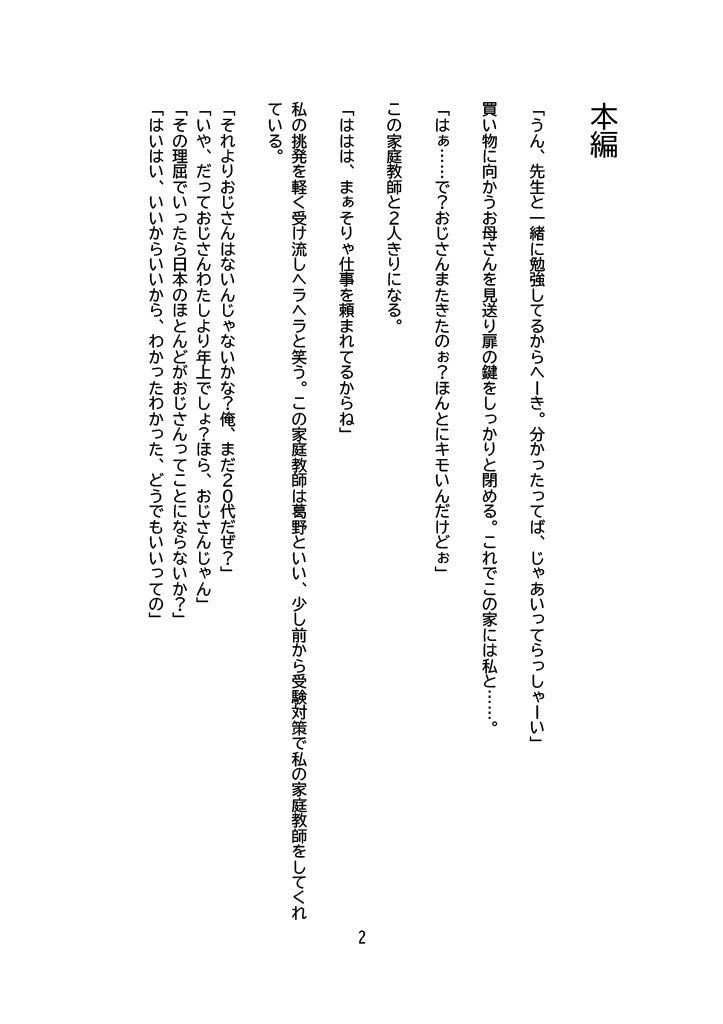 本編
「うん、先生と一緒に勉強してるからへーき。分かったってば、じゃあいってらっしゃーい」
買い物に向かうお母さんを見送り扉の鍵をしっかりと閉める。これでこの家には私と……。
「はぁ……で？おじさんまたきたのぉ？ほんとにキモいんだけどぉ」
この家庭教師と２人きりになる。
「ははは、まぁそりゃ仕事を頼まれてるからね」
私の挑発を軽く受け流しヘラヘラと笑う。この家庭教師は葛野といい、少し前から受験対策で私の家庭教師をしてくれ
ている。
「それよりおじさんはないんじゃないかな？俺、まだ２０代だぜ？」
「いや、だっておじさんわたしより年上でしょ？ほら、おじさんじゃん」
「その理屈でいったら日本のほとんどがおじさんってことにならないか？」
「はいはい、いいからいいから、わかったわかった、どうでもいいっての」
2